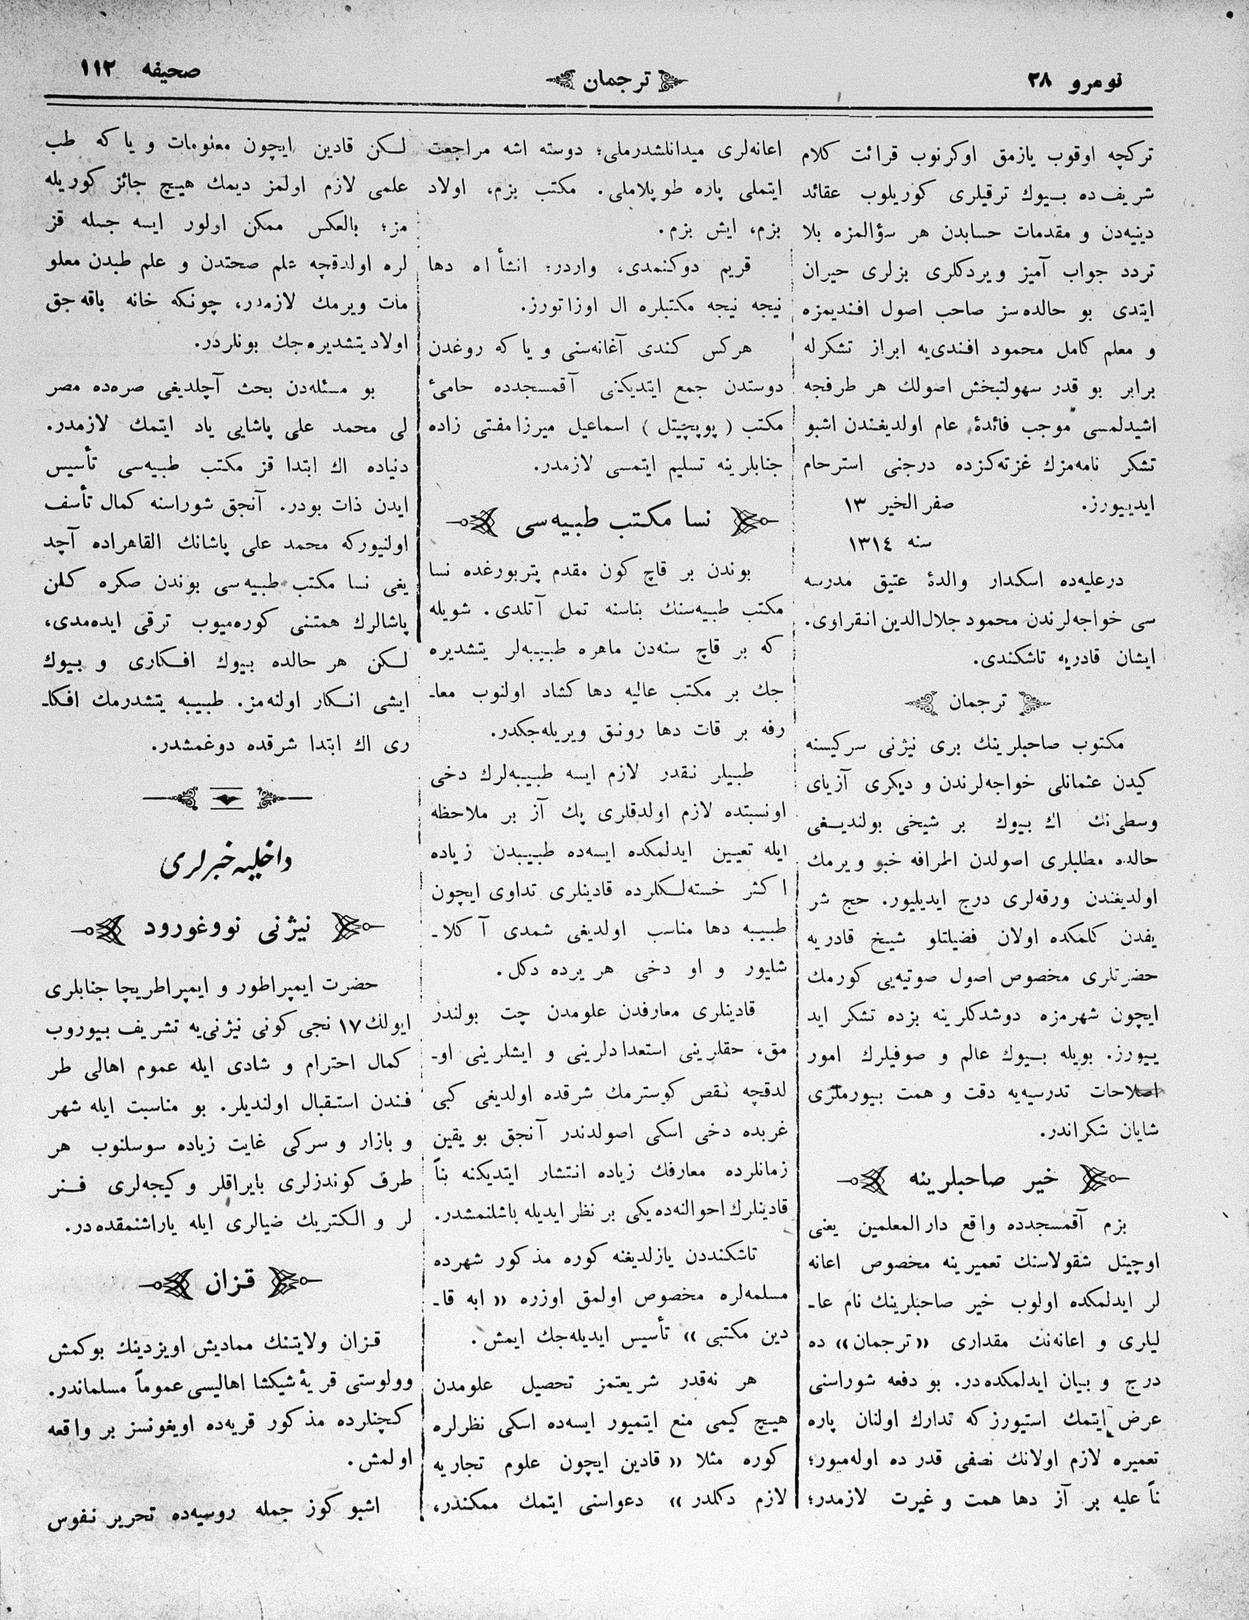 نومرو ٢٨
ترجمان
صحیفه ١١٢
ترکچه اوقوب یازمق اوکرنوب قرائت کلام
شریف‌ده بیوك ترقیلری کوریلوب عقائد
دینیه‌دن و مقدمات حسابدن هر سؤالمزه بلا
تردد جواب آمیز ویردکلری بزلری حیران
ایتدی بو حالده‌سز صاحب اصول افندیمزه
و معلم کامل محمود افندی‌یه ابراز تشکرله
برابر بو قدر سهولتبخش اصولك هر طرفجه
اشیدلمسی موجب فائدۀ عام اولدیغندن اشبو
تشکر نامه‌مزك غزته‌کزده درجنی استرحام
ایدییورز. صفر الخیر ١٣
سنه ١٣١٤
درعلیه‌ده اسکدار والدۀ عتیق مدرسه
سی خواجه‌لرندن محمود جلال‌الدین انقراوی.
ایشان قادریه تاشکندی.
ترجمان
مکتوب صاحبلرینك بری نیژنی سرکیسنه
کیدن عثمانلی خواجه‌لرندن و دیکری آزیای
وسطی‌نك اك بیوك بر شیخی بولندیغی
حالده مطلبلری اصولدن اطرافه خبو ویرمك
اولدیغندن ورقه‌لری درج ایدیلیور. حج شر
یفدن کلمکده اولان فضیلتلو شیخ قادریه
حضرتلری مخصوص اصول صوتیه‌یی کورمك
ایچون شهرمزه دوشدکلرینه بزده تشکر اید
ییورز. بویله بیوك عالم و صوفیلرك امور
اصلاحات تدرسیه‌یه دقت و همت بیورملری
شایان شکراندر.
خیر صاحبلرینه
بزم آقمسجدده واقع دارالمعلمین یعنی
اوچیتل شقولاسنك تعمیرینه مخصوص اعانه
لر ایدلمکده اولوب خیر صاحبلرینك نام عا-
لیلری و اعانه‌نك مقداری «ترجمان» ده
درج و بیان ایدلمکده‌در. بو دفعه شوراسنی
عرض ایتمك استیورزکه تدارك اولنان پاره
تعمیره لازم اولانك نصفی قدر ده اوله‌میور؛
بناً علیه بر آز دها همت و غیرت لازمدر؛
اعانه‌لری میدانلشدرملی؛ دوسته اشه مراجعت
ایتملی پاره طوپلاملی. مکتب بزم، اولاد
بزم، ایش بزم.
قریم دوکنمدی، واردر؛ انشأ اه دها
نیجه نیجه مکتبلره ال اوزاتورز.
هرکس کندی آغانه‌سنی و یاکه روغدن
دوستدن جمع ایتدیکنی آقمسجدده حامیٔ
مکتب ( پوپچیتل ) اسماعیل میرزا مفتی زاده
جنابلرینه تسلیم ایتمسی لازمدر.
نسا مکتب طبیه‌سی
بوندن بر قاچ کون مقدم پتربورغده نسا
مکتب طبیه‌سنك بناسنه تمل آتلدی. شویله
که بر قاچ سنه‌دن ماهره طبیبه‌لر یتشدیره
جك بر مکتب عالیه دها کشاد اولنوب معا-
رفه بر قات دها رونق ویریله‌جکدر.
طبیلر نقدر لازم ایسه طبیبه‌لرك دخی
اونسبتده لازم اولدقلری پك آز بر ملاحظه
ایله تعیین ایدلمکده ایسه‌ده طبیبدن زیاده
اکثر خسته‌لکلرده قادینلری تداوی ایچون
طبیبه دها مناسب اولدیغی شمدی آکلا-
شلیور و او دخی هر یرده دکل.
قادینلری معارفدن علومدن چت بولندر
مق، حقلرینی استعدادلرینی و ایشلرینی او-
لدقچه نقص کوسترمك شرقده اولدیغی کبی
غربده دخی اسکی اصولدندر آنجق بو یقین
زمانلرده معارفك زیاده انتشار ایتدیکنه بنأ
قادینلرك احوالنه‌ده یکی بر نظر ایدیله باشلنمشدر.
تاشکنددن یازلدیغنه کوره مذکور شهرده
مسلمه‌لره مخصوص اولمق اوزره «ابه قا-
دین مکتبی» تأسیس ایدیله‌جك ایمش.
هر نه‌قدر شریعتمز تحصیل علومدن
هیچ کیمی منع ایتمیور ایسه‌ده اسکی نظرلره
کوره مثلا «قادین ایچون علوم تجاریه
لازم دکلدر» دعواسنی ایتمك ممکندر،
لکن قادین ایچون معلومات و یاکه طب
علمی لازم اولمز دیمك هیچ جائز کوریله
مز؛ بالعکس ممکن اولور ایسه جمله قز
لره اولدقچه علم صحتدن و علم طبدن معلو
مات ویرمك لازمدر، چونکه خانه باقه‌جق
اولاد یتشدیره‌جك بونلردر.
بو مسئله‌دن بحث آچلدیغی صره‌ده مصر
لی محمد علی پاشایی یاد ایتمك لازمدر.
دنیاده اك ابتدا قز مکتب طبیه‌سی تأسیس
ایدن ذات بودر. آنجق شوراسنه کمال تأسف
اولنیورکه محمد علی پاشانك القاهراده آچد
یغی نسا مکتب طبیه‌سی بوندن صکره کلن
پاشالرك همتنی کوره‌میوب ترقی ایده‌مدی،
لکن هر حالده بیوك افکاری و بیوك
ایشی انکار اولنه‌مز. طبیبه یتشدرمك افکا-
ری اك ابتدا شرقده دوغمشدر.
داخلیه خبرلری
نیژنی نووغورود
حضرت ایمپراطور و ایمپراطریچا جنابلری
ایولك ١٧ نجی کونی نیژنی‌یه تشریف بیوروب
کمال احترام و شادی ایله عموم اهالی طر
فندن استقبال اولندیلر. بو مناسبت ایله شهر
و بازار و سرکی غایت زیاده سوسلنوب هر
طرف کوندزلری بایراقلر و کیجه‌لری فنر
لر و الکتریك ضیالری ایله یاراشنمقده‌در.
قزان
قزان ولایتنك ممادیش اویزدینك بوکمش
وولوستی قریۀ شیکشا اهالیسی عموماً مسلماندر.
کچنلرده مذکور قریه‌ده اویغونسز بر واقعه
اولمش.
اشبو کوز جمله روسیه‌ده تحریر نفوس